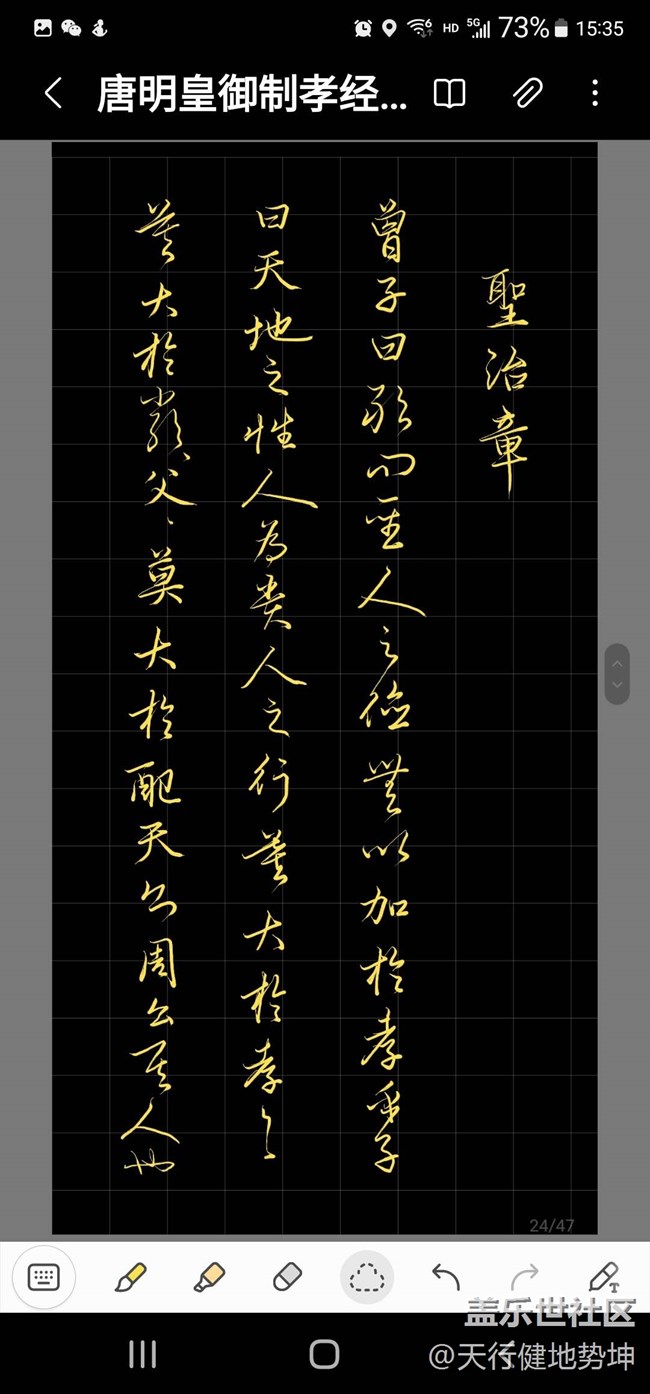 73% 15:35
唐明皇御制孝经...
聖治章
曾子曰敢問聖人之德無以加於孝乎子
曰天地之性人為貴人之行莫大於孝〻
莫大於嚴父〻莫大於配天則周公其人也
24/47
盖乐世社区
@天行健地势坤